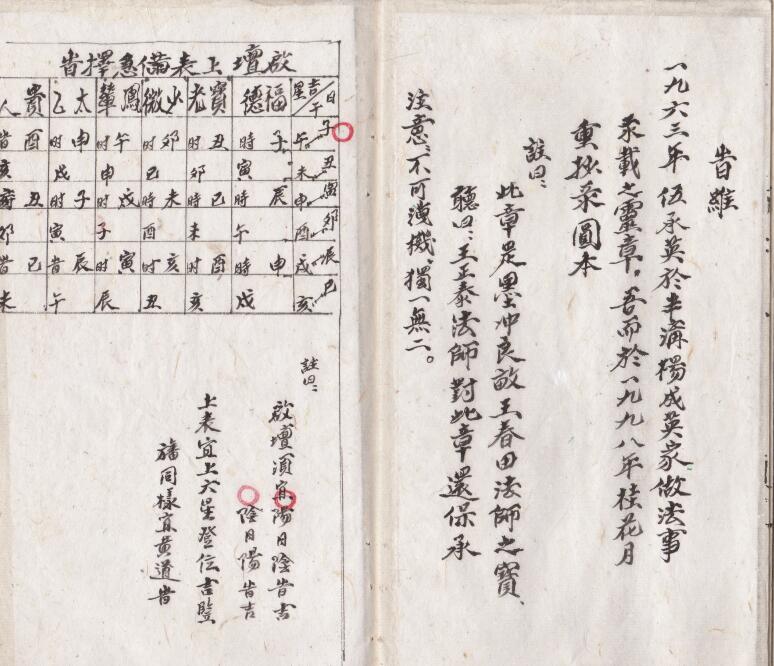 旹維
一九六三年伍承英於半溝獨成英家做法事
录載之靈章。吾而於一九九八年桂花月
重抄录圓本
註曰：
此章是墨冲良敢王春田法師之寶、
聽曰：王正泰法師對此章還保承
注意、不可洩機、獨一無二。
啟壇上表備急擇旹
日 吉星 福德 寶老 少微 鳳輦 太乙 貴人
子午 丑未 寅申 卯酉 辰戌 巳亥
子時寅 辰時午 申時戌
丑时卯 巳時未 酉時亥
卯时巳 未時酉 亥时丑
午时申 戌时子 寅时辰
申时戌 子时寅 辰旹午
酉旹亥 丑時卯 巳旹未
註曰：
啟壇須宜陽日陰旹吉
陰日陽旹吉
上表宜上六星登位吉
同樣宜黄道旹